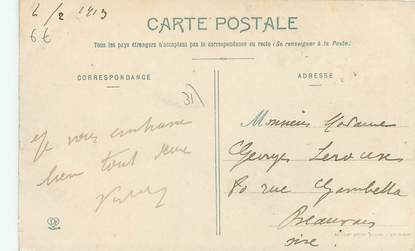 2/2 1913
6€
CARTE POSTALE
Tous les pays étrangers n'acceptent pas la correspondance au recto (Se renseigner à la Poste)
CORRESPONDANCE
ADRESSE
31
Monsieur Madame
Georges Leroux
80 rue Gambetta
Beauvais
Oise
Je vous embrasse
bien tout